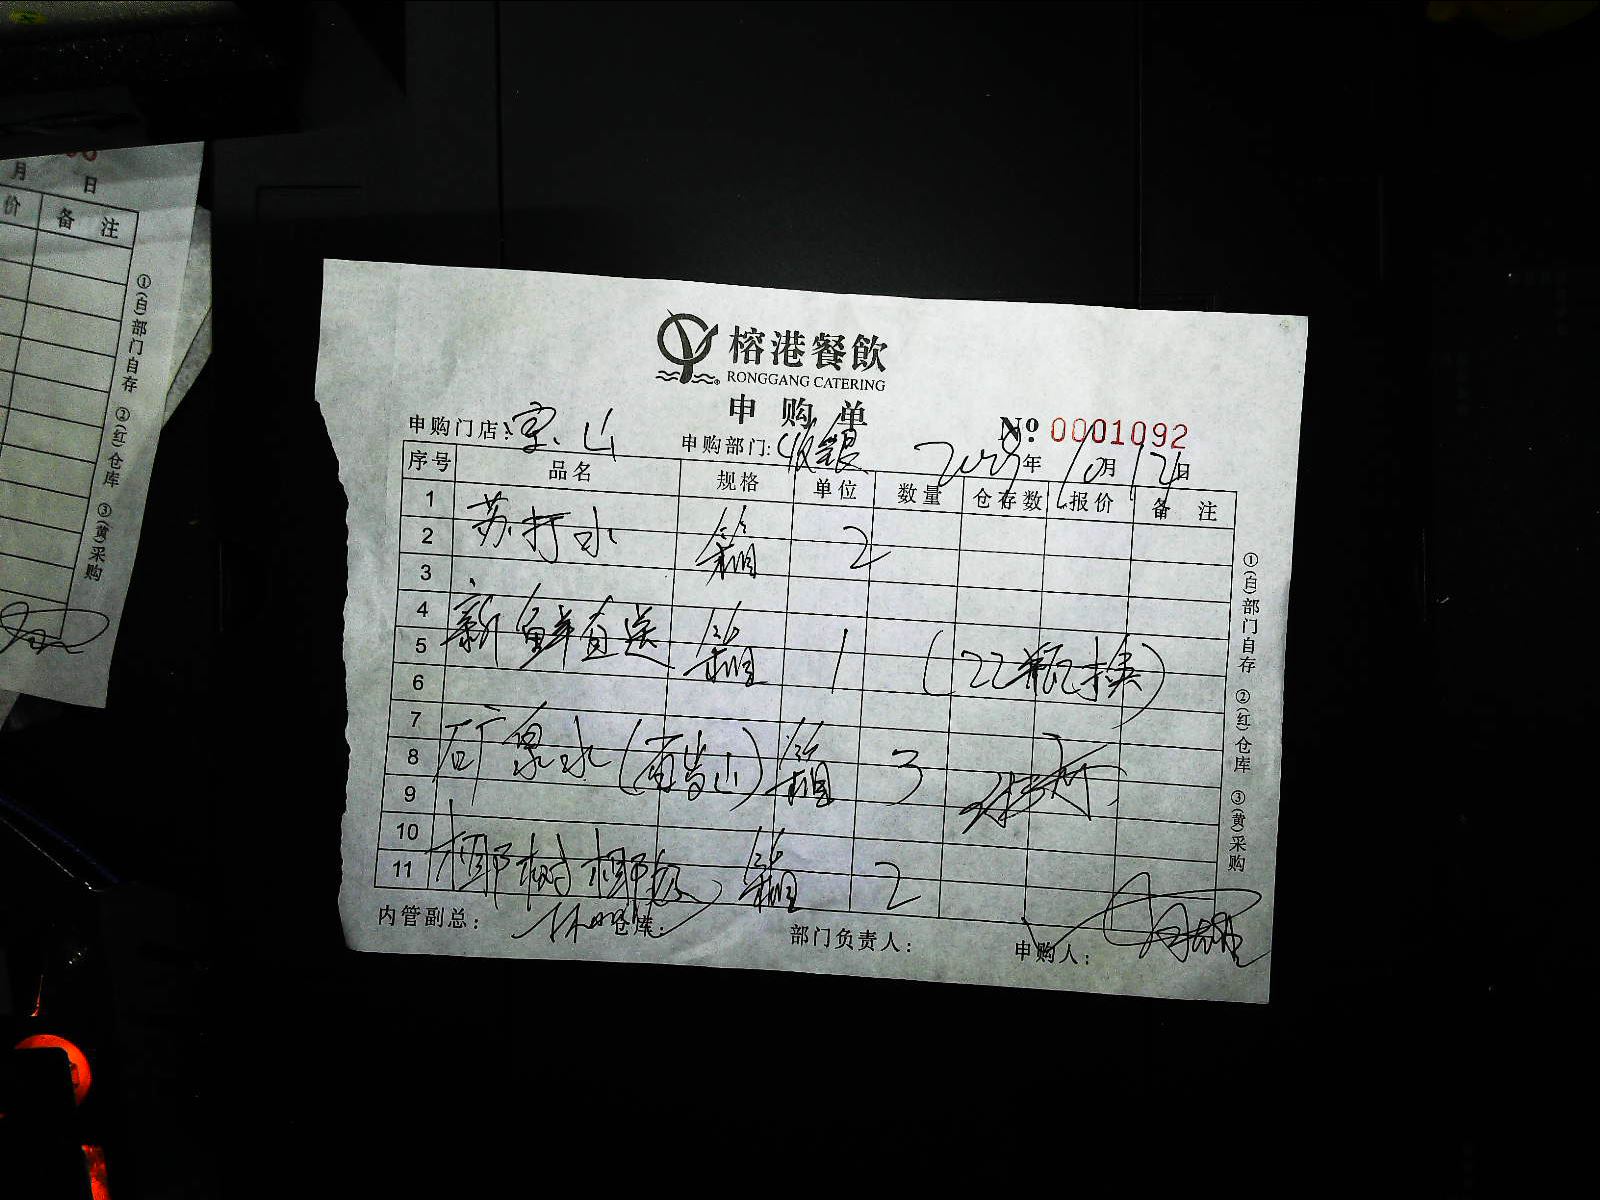 月 日
价 备 注
①(白)部门自存 ②(红)仓库 ③(黄)采购
榕港餐飲
RONGGANG CATERING
申购单
№ 0001092
申购门店: 宝山 申购部门: 收银 年 10月 12日
序号 品名 规格 单位 数量 仓存数 报价 备 注
1
2 苏打水 箱 2
3
4
5 新鲜直送 箱 1 (22瓶换)
6
7
8 矿泉水(百岁山) 箱 3
9
10
11 椰树椰汁 箱 2
内管副总: 仓库: 部门负责人: 申购人:
①(白)部门自存 ②(红)仓库 ③(黄)采购